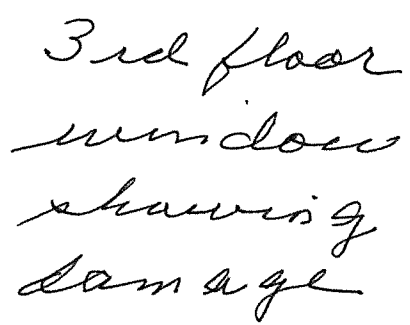 3rd floor
window
showing
damage